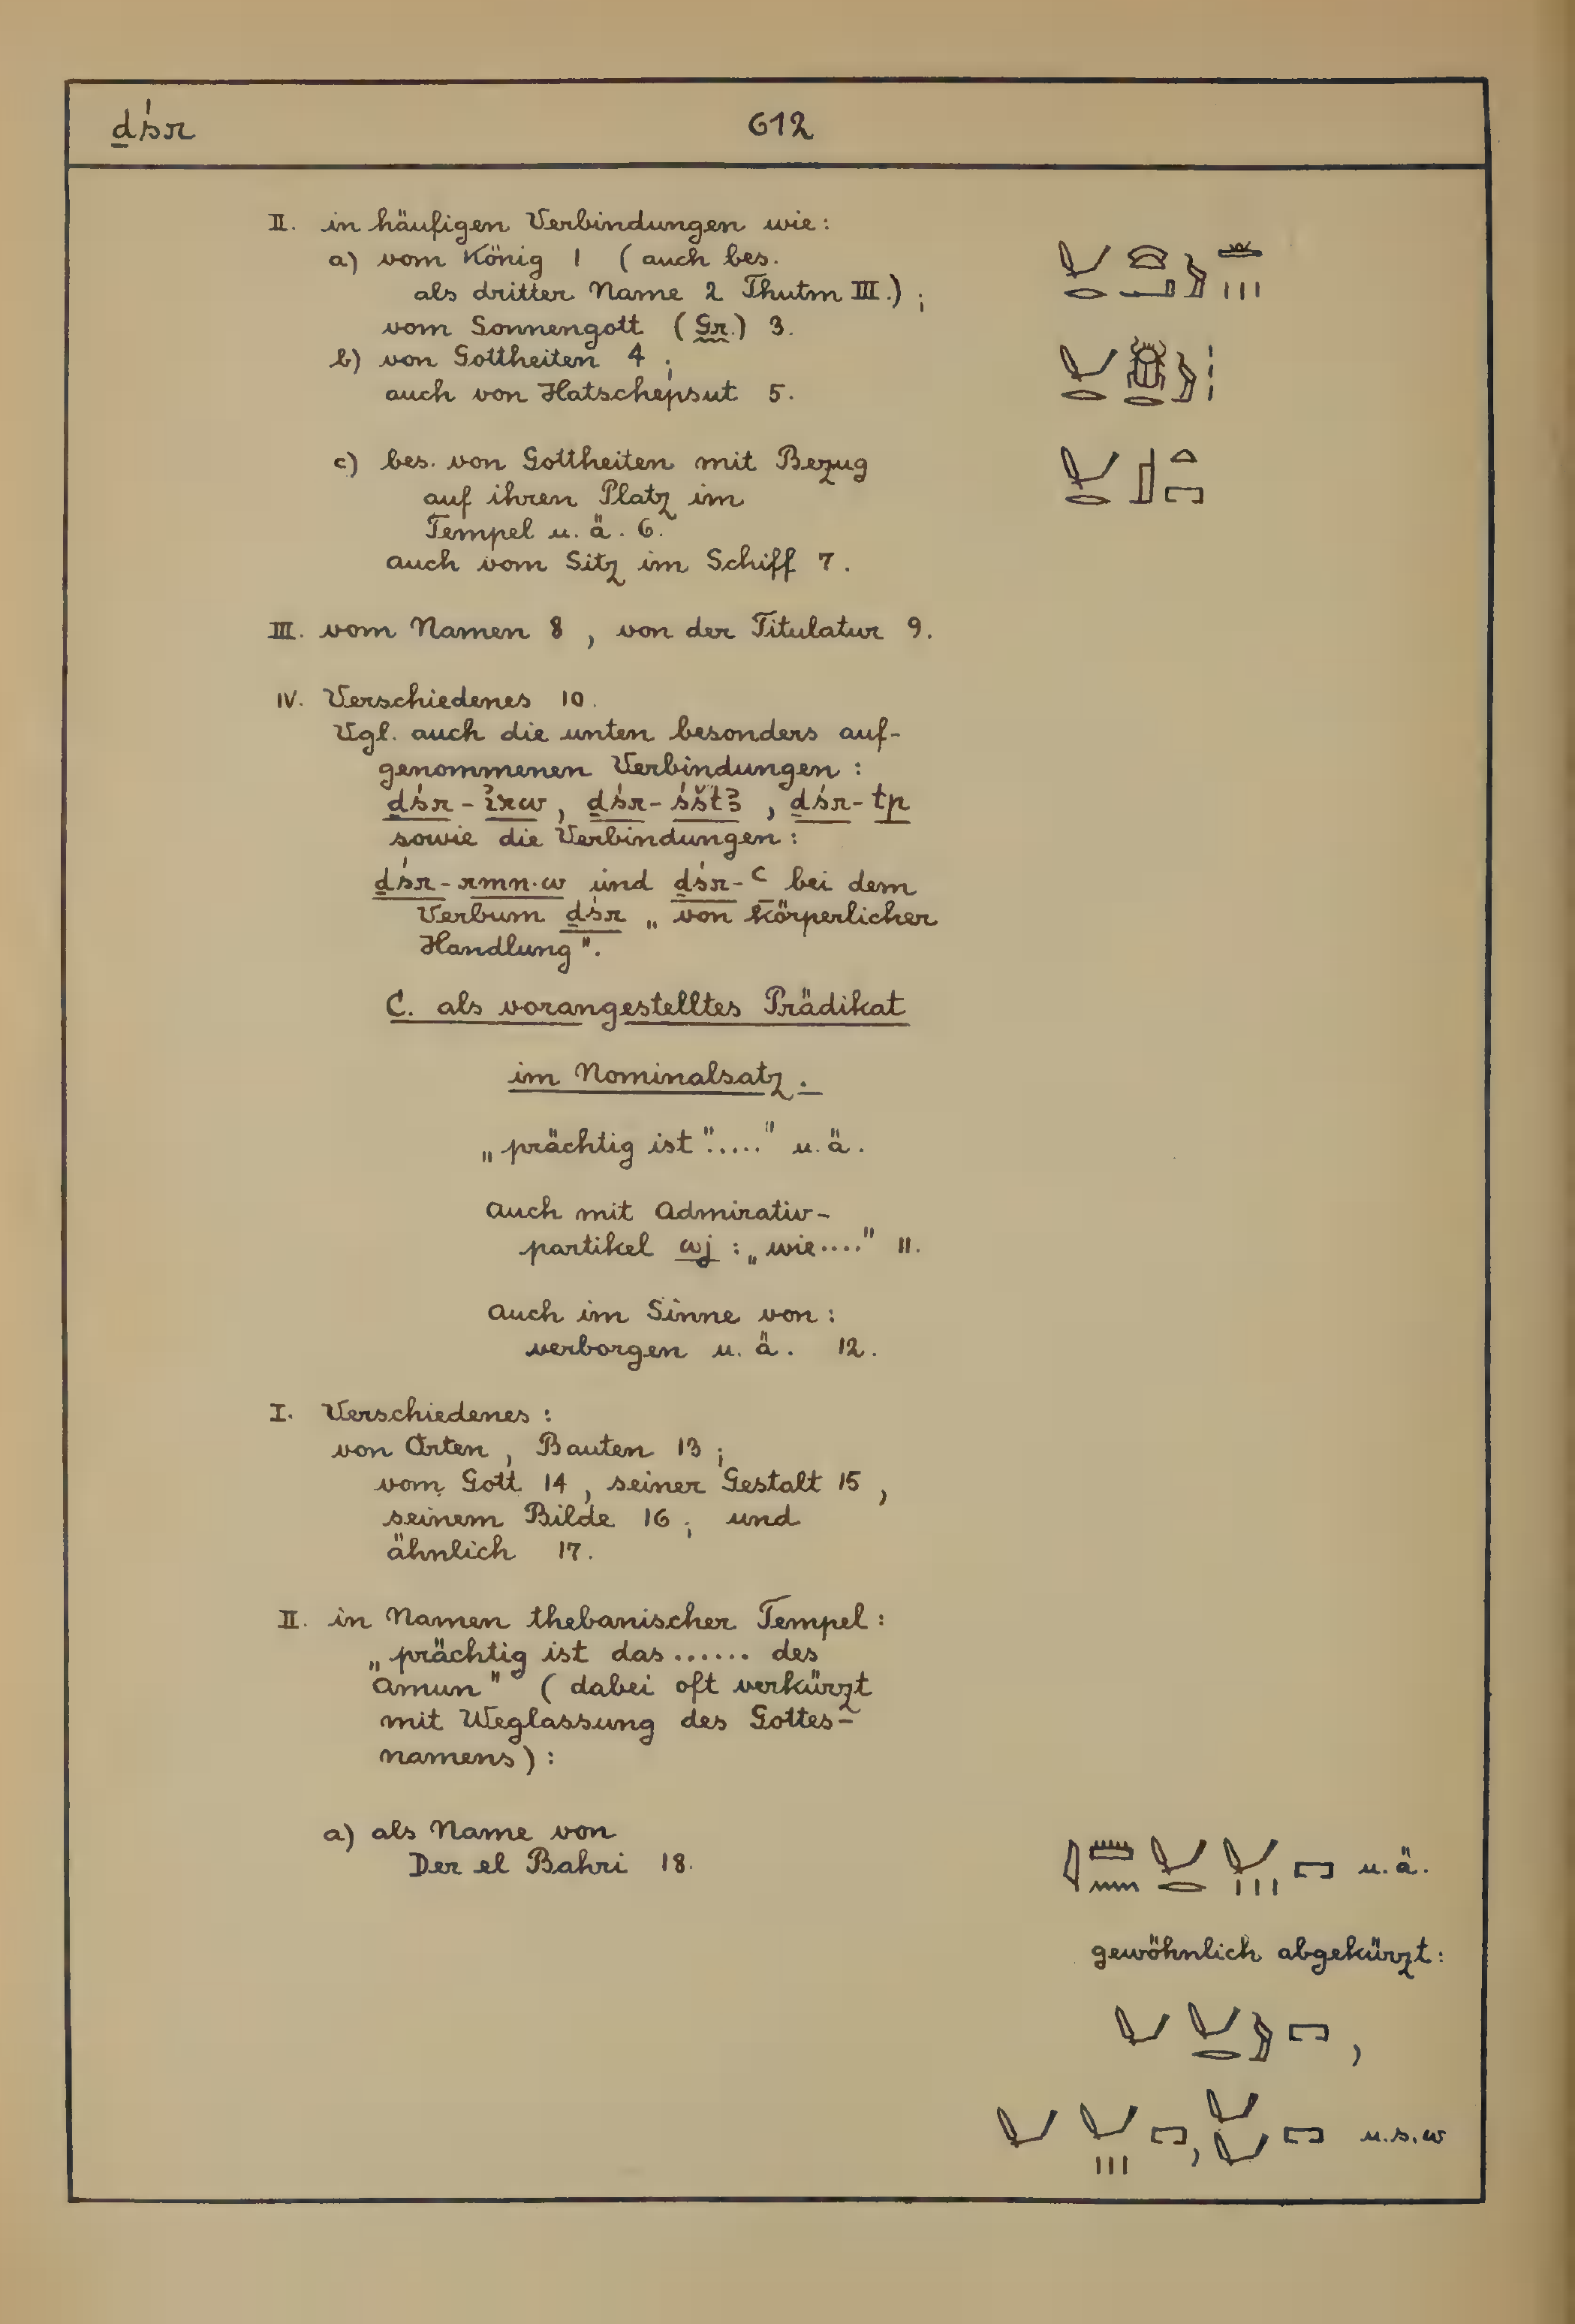 ḏśr 612
II. in häufigen Verbindungen wie:
a) vom König 1 (auch bes.
als dritter Name 2 Thutm III.);
vom Sonnengott (Gr.) 3.
b) von Gottheiten 4;
auch von Hatschepsut 5.
c) bes. von Gottheiten mit Bezug
auf ihren Platz im
Tempel u. ä. 6.
auch vom Sitz im Schiff 7.
III. vom Namen 8, von der Titulatur 9.
IV. Verschiedenes 10.
Vgl. auch die unten besonders auf-
genommenen Verbindungen:
ḏśr-ỉrw, ḏśr-śštꜣ, ḏśr-tp
sowie die Verbindungen:
ḏśr-rmn.w und ḏśr-ꜥ bei dem
Verbum ḏśr „von körperlicher
Handlung".
C. als vorangestelltes Prädikat
im Nominalsatz.
„prächtig ist"....." u. ä.
auch mit Admirativ-
partikel wj: „wie...." 11.
auch im Sinne von:
verborgen u. ä. 12.
I. Verschiedenes:
von Orten, Bauten 13;
vom Gott 14, seiner Gestalt 15,
seinem Bilde 16; und
ähnlich 17.
II. in Namen thebanischer Tempel:
„prächtig ist das...... des
Amun" (dabei oft verkürzt
mit Weglassung des Gottes-
namens):
a) als Name von
Der el Bahri 18. u. ä.
gewöhnlich abgekürzt:
u.s.w